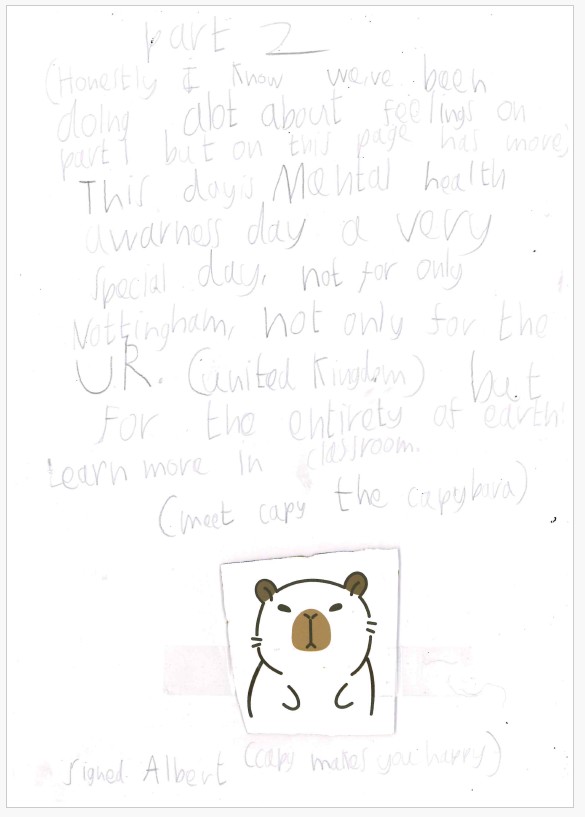 part 2
(Honestly I know we've been
doing alot about feelings on
part 1 but on this page has more)
This day is Mental health
awarness day a very
special day, not for only
Nottingham, not only for the
UK. (united Kingdom) but
For the entirety of earth!
Learn more in classroom.
(meet capy the capybara)
signed Albert (capy makes you happy)